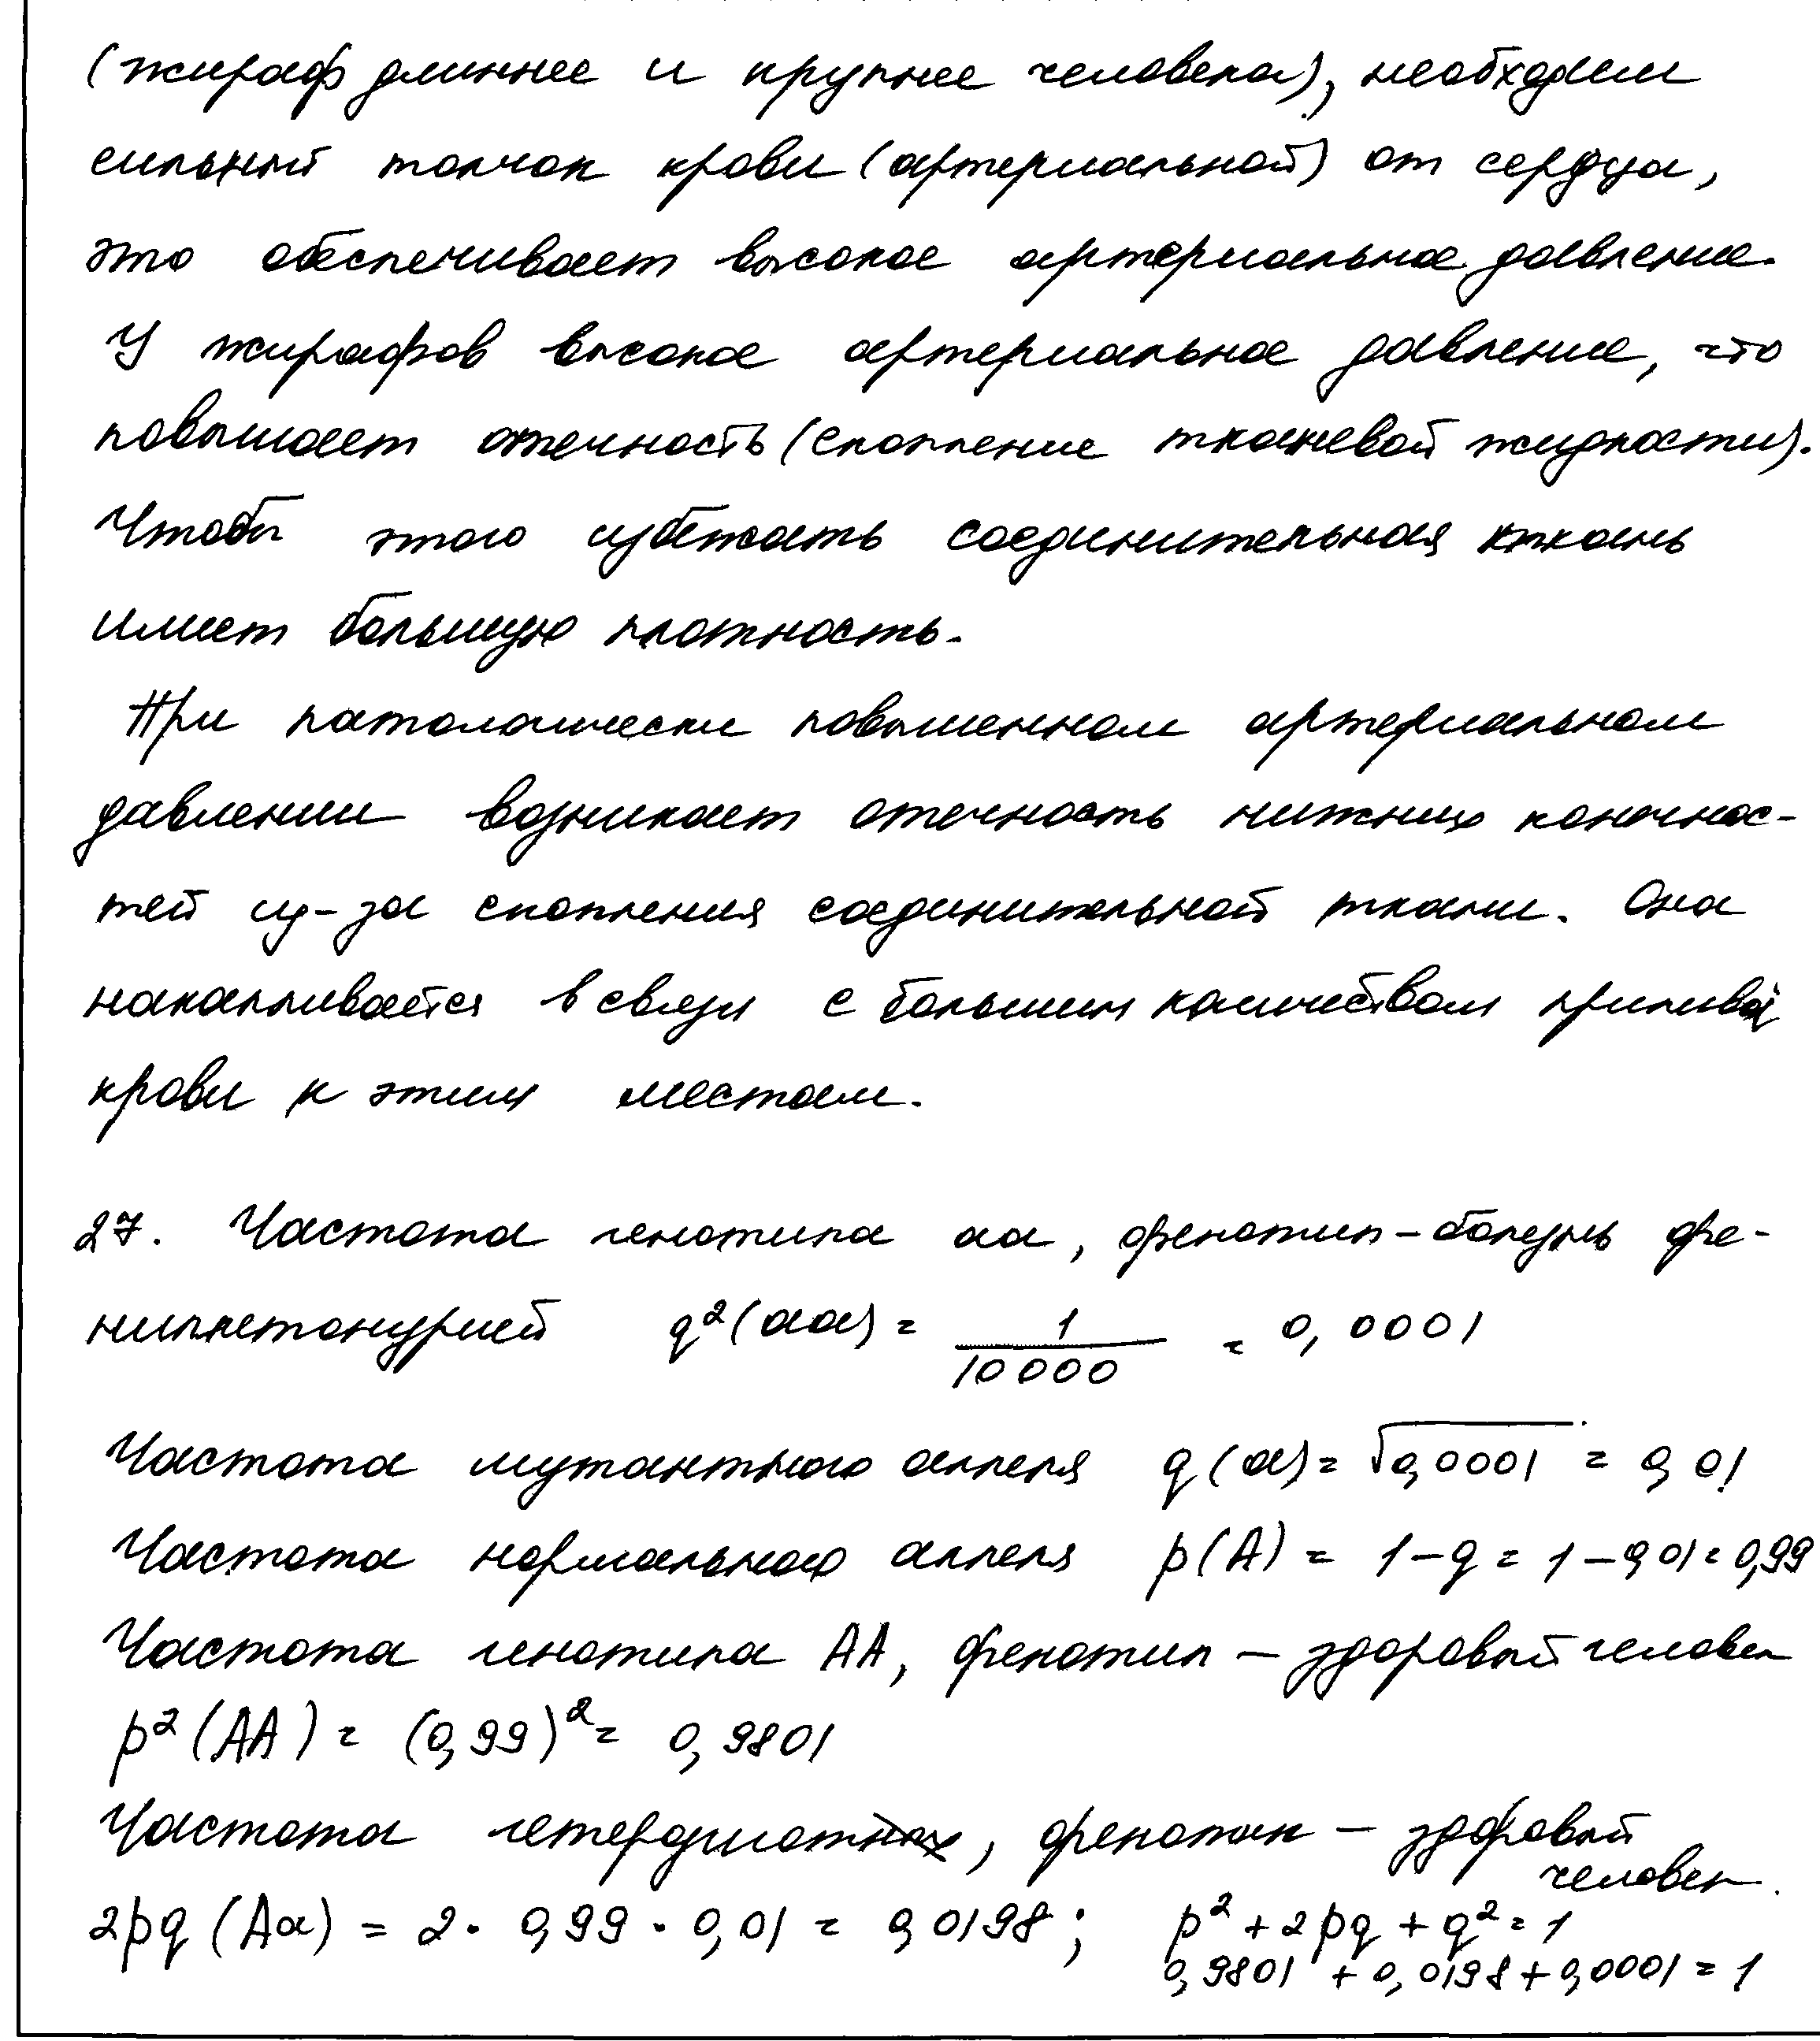 (жираф длиннее и крупнее человека), необходим
сильный толчок крови (артериальной) от сердца,
это обеспечивает высокое артериальное давление.
У жирафов высокое артериальное давление, что
повышает отечность (скопление тканевой жидкости).
Чтобы этого избежать соединительная ткань
имеет большую плотность.
При патологически повышенном артериальном
давлении возникает отечность нижних конечнос-
тей из-за скопления соединительной ткани. Она
накапливается в связи с большим количеством приливов
крови к этим местам.
27. Частота генотипа аа, фенотип - болезнь фе-
нилкетонурией q²(аа) = 1/10000 = 0,0001
Частота мутантного аллеля q(а) = √0,0001 = 0,01
Частота нормального аллеля p(А) = 1 - q = 1 - 0,01 = 0,99
Частота генотипа АА, фенотип — здоровый человек
p²(АА) = (0,99)² = 0,9801
Частота гетерозигот, фенотип — здоровый
человек.
2pq (Аа) = 2 · 0,99 · 0,01 = 0,0198 ; p² + 2pq + q² = 1
0,9801 + 0,0198 + 0,0001 = 1